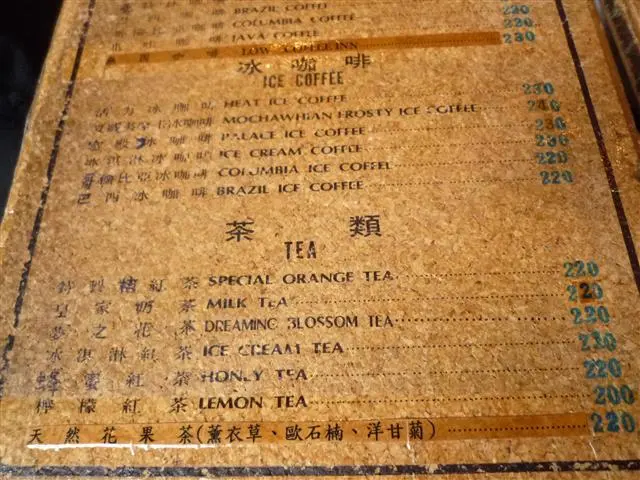 BRAZIL COFFEE 220
COLUMBIA COFFEE 220
JAVA COFFEE 220
LOW COFFEE INN 230
冰咖啡
ICE COFFEE
活力冰咖啡 HEAT ICE COFFEE 230
冰咖啡 MOCHAWHIAN FROSTY ICE COFFEE 240
宮殿冰咖啡 PALACE ICE COFFEE 230
冰淇淋冰咖啡 ICE CREAM COFFEE 230
哥倫比亞冰咖啡 COLUMBIA ICE COFFEE 220
巴西冰咖啡 BRAZIL ICE COFFEE 220
茶類
TEA
特製桔紅茶 SPECIAL ORANGE TEA 220
皇家奶茶 MILK TEA 220
夢之花茶 DREAMING BLOSSOM TEA 220
冰淇淋紅茶 ICE CREAM TEA 210
蜂蜜紅茶 HONEY TEA 220
檸檬紅茶 LEMON TEA 200
天然花果茶(薰衣草、歐石楠、洋甘菊) 220